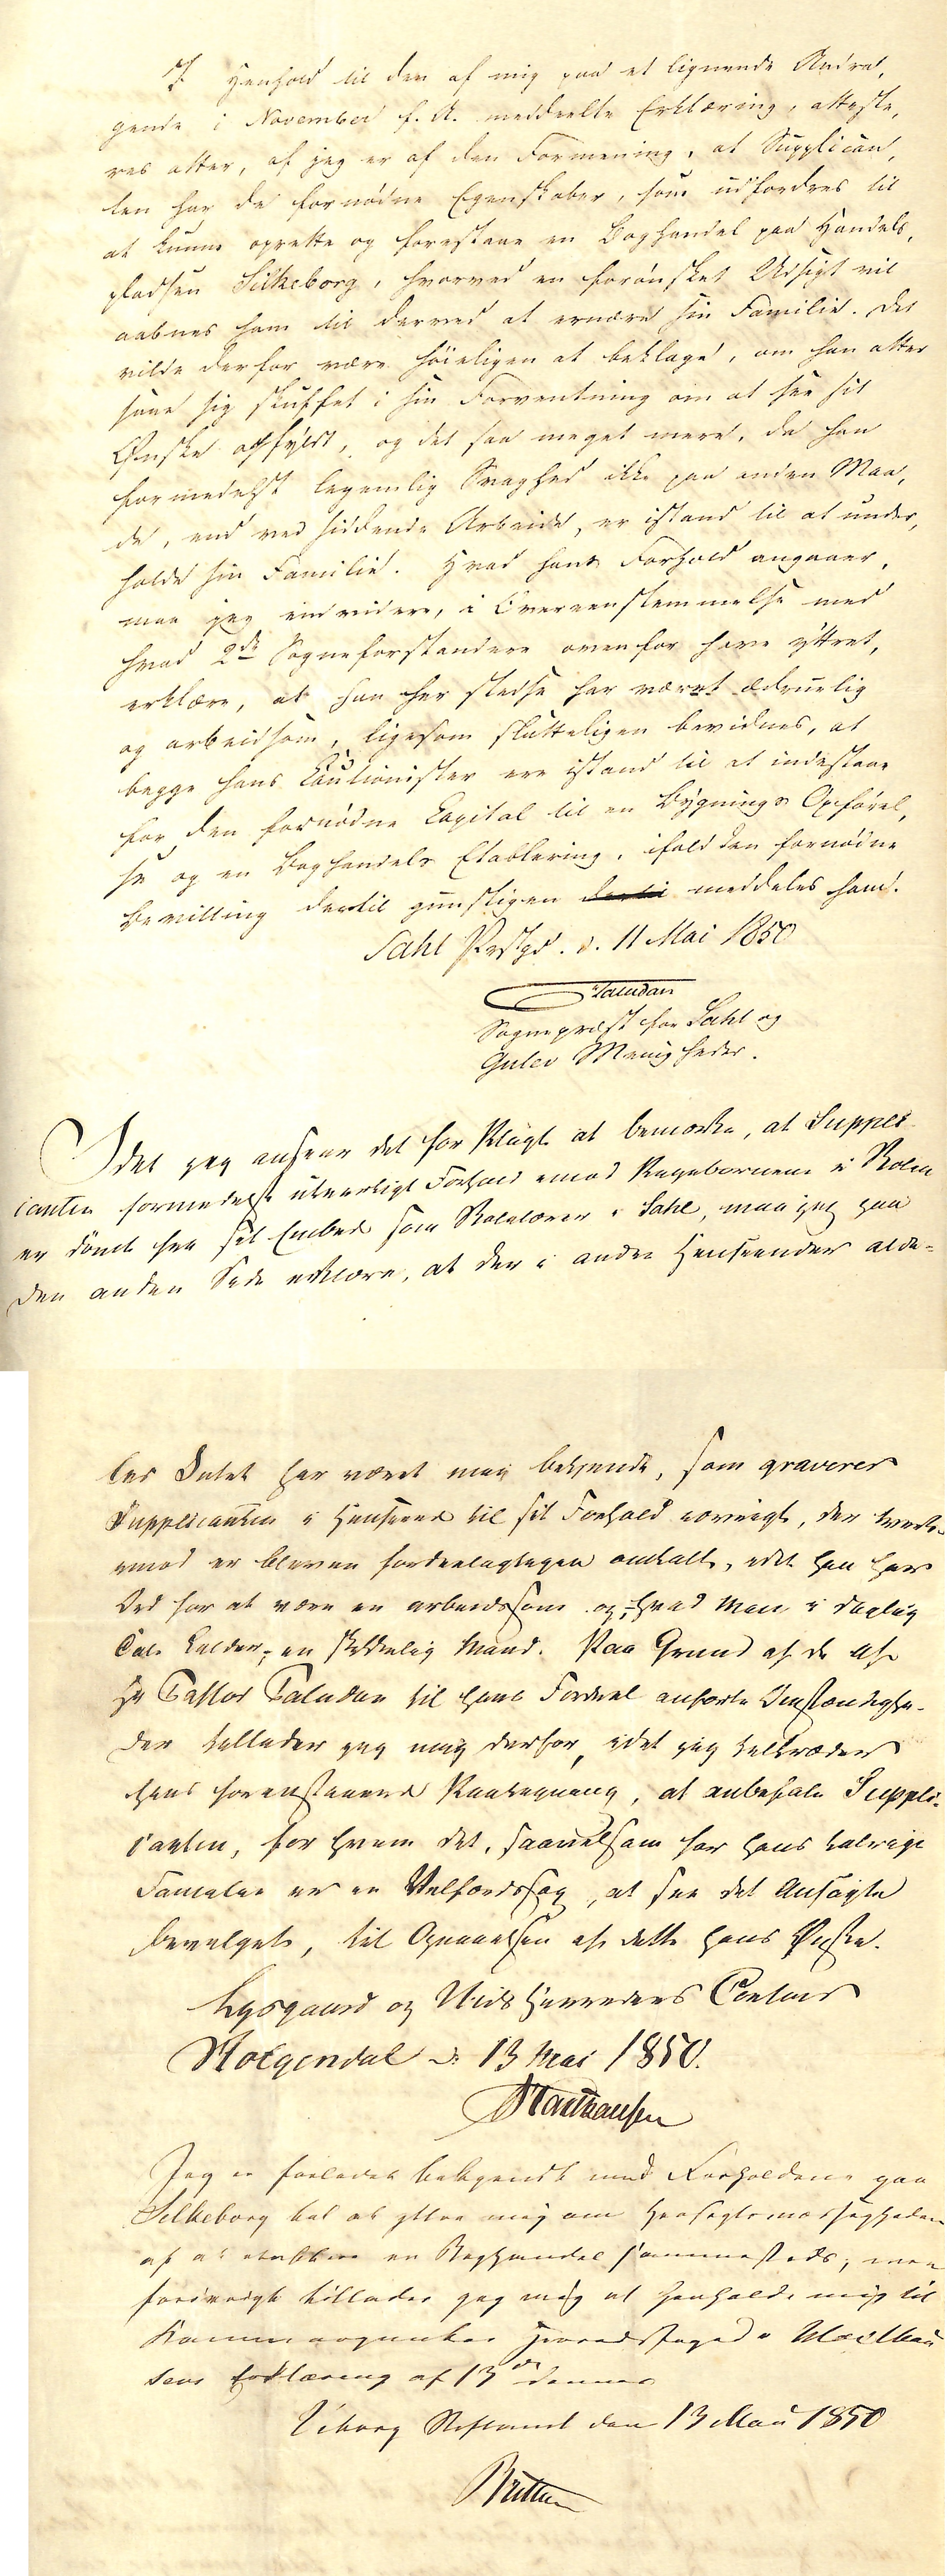 I Henhold til den af mig paa et lignende Andra,
gende i November f. A. meddeelte Erklæring, atteste,
res atter, at jeg er af den Formening, at Supplican,
ten har de fornødne Egenskaber, som udfordres til
at kunne oprette og forestaae en Boghandel paa Handels,
pladsen Silkeborg, hvorved en forønsket Udsigt vil
aabnes ham til derved at ernære sin Familie. Det
vilde derfor være høiligen at beklage, om han atter
saae sig skuffet i sin Forventning om at see sit
Ønske opfyldt, og det saa meget mere, da han
formedelst legemlig Svaghed ikke paa anden Maa,
de, end ved siddende Arbeide, er istand til at under,
holde sin Familie. Hvad hans Forhold angaaer,
maa jeg end videre, i Overeenstemmelse med
hvad 2de Sogneforstandere ovenfor have yttret,
erklære, at han her stedse har været ædruelig
og arbeidsom, ligesom slutteligen bevidnes, at
begge hans Cautionister ere istand til at indestaae
for den fornødne Capital til en Bygnings Opførel,
se og en Boghandels Etablering, ifald den fornødne
Bevilling dertil gunstigen meddeles ham.
Sahl Præstgd. d. 11 Mai 1850
Paludan
Sognepræst for Sahl og
Gullev Menigheder.
Idet jeg anseer det for Pligt at bemærke, at Suppli-
canten formedelst uteerligt Forhold imod Pigebørnene i Skolen
er dømt fra sit Embed som Skolelærer i Sahl, maa jeg paa
den anden Side erklære, at der i andre Henseender alde-
les Intet har været mig bekjendt, som graverer
Supplicanten i Henseende til sit Forhold iøvrigt, der tvert-
imod er bleven fordeelagtigen omtalt, idet han har
Ord for at være en arbeidssom og, hvad man i daglig
Tale kalder, en skikkelig Mand. Paa Grund af de af
Hr Pastor Paludan til hans Fordeel anførte Omstændighe-
der tillader jeg mig derfor, idet jeg tiltræder
hans foranstaaende Paategning, at anbefale Suppli-
canten, for hvem det, saavelsom for hans talrige
Familie er en Velfærdssag, at see det Ansøgte
bevilget, til Opnaaelsen af dette hans Ønske.
Lysgaard og Hids Herreders Contoir
Holgendal d: 13 Mai 1850.
Jeg er forlidet bekjendt med Forholdene paa
Silkeborg til at yttre mig om Hensigtsmæssigheden
af at etablere en Boghandel sammesteds, men
forøvrigt tillader jeg mig at henholde mig til
Kammerjunker Herredsfoged
sens Erklæring af 13de dennes
Viborg Stiftamt den 13 Mai 1850